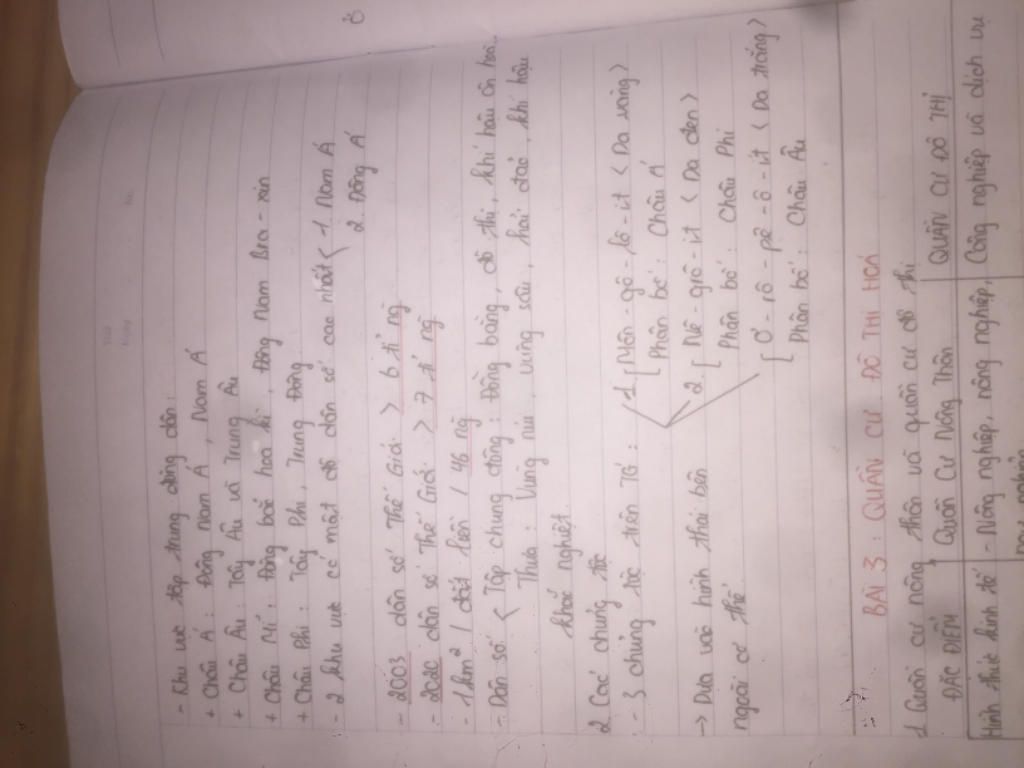 - Khu vực tập trung đông dân:
+ Châu Á: Đông Nam Á, Nam Á
+ Châu Âu: Tây Âu và Trung Âu
+ Châu Mĩ: Đông bắc hoa kì, Đông Nam Bra-xin
+ Châu Phi: Tây Phi, Trung Đông
- 2 khu vực có mật độ dân số cao nhất < 1 Nam Á
2 Đông Á
- 2003 dân số Thế Giới > 6 tỉ ng
- 2020 dân số Thế Giới > 7 tỉ ng
- 1km² / đất liền / 46 ng
- Dân số < Tập chung đông: Đồng bằng, đô thị, khí hậu ôn hoà,
Thưa: Vùng núi, vùng sâu, hải đảo, khí hậu
khắc nghiệt.
2 Các chủng tộc
- 3 chủng tộc trên TG:
1 [ Môn-gô-lô-ít < Da vàng >
Phân bố: Châu Á
2 [ Nê-grô-ít < Da đen >
Phân bố: Châu Phi
[ Ơ-rô-pê-ô-ít < Da trắng >
Phân bố: Châu Âu
-> Dựa vào hình thái bên
ngoài cơ thể
BÀI 3: QUẦN CƯ ĐÔ THỊ HOÁ
1 Quần cư nông thôn và quần cư đô thị
ĐẶC ĐIỂM Quần Cư Nông Thôn QUẦN CƯ ĐÔ THỊ
Hình thức kinh tế - Nông nghiệp, nông nghiệp, Công nghiệp và dịch vụ